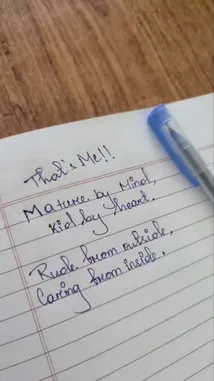 That's Me!!
Mature by Mind,
Kid by heart.
Rude from outside,
Caring from inside.